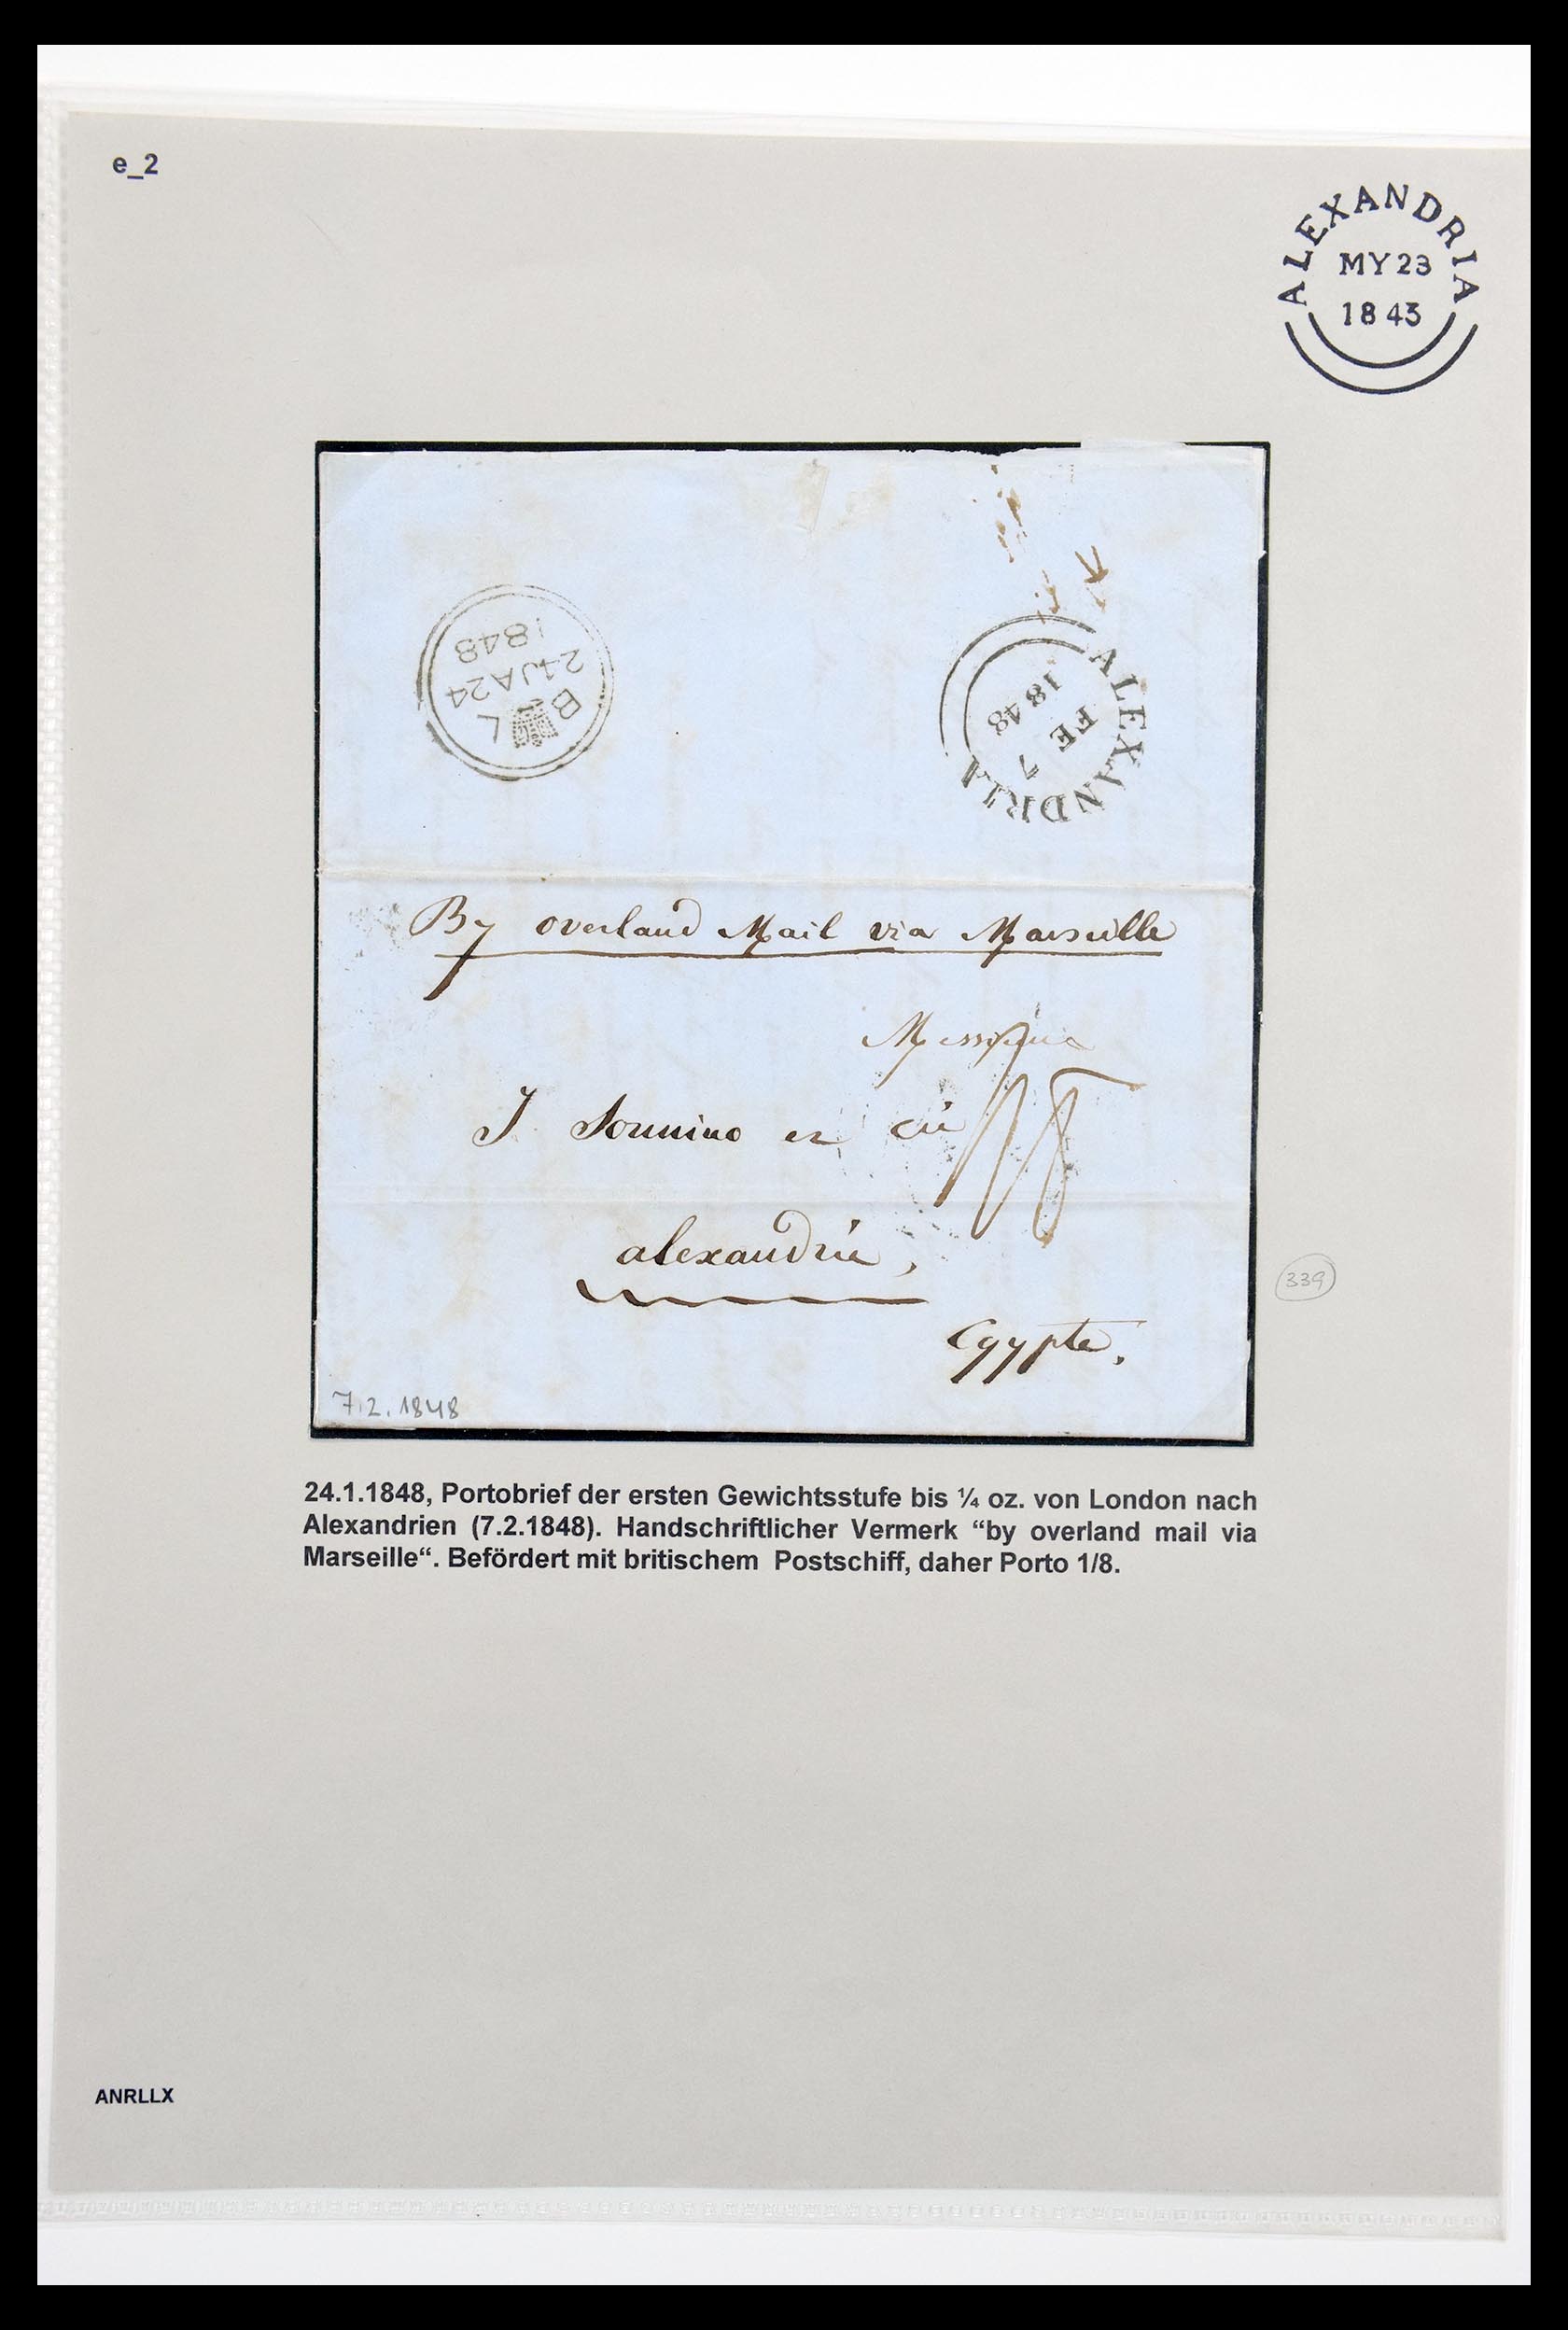 e_2
ALEXANDRIA
MY 23
1843
B L
24 JA 24
1848
ALEXANDRIA
FE 7
1848
By overland Mail via Marseille
1/8
J Sonnino et Cie
alexandrie,
Egypte.
7.2.1848
339
24.1.1848, Portobrief der ersten Gewichtsstufe bis ¼ oz. von London nach
Alexandrien (7.2.1848). Handschriftlicher Vermerk “by overland mail via
Marseille“. Befördert mit britischem Postschiff, daher Porto 1/8.
ANRLLX